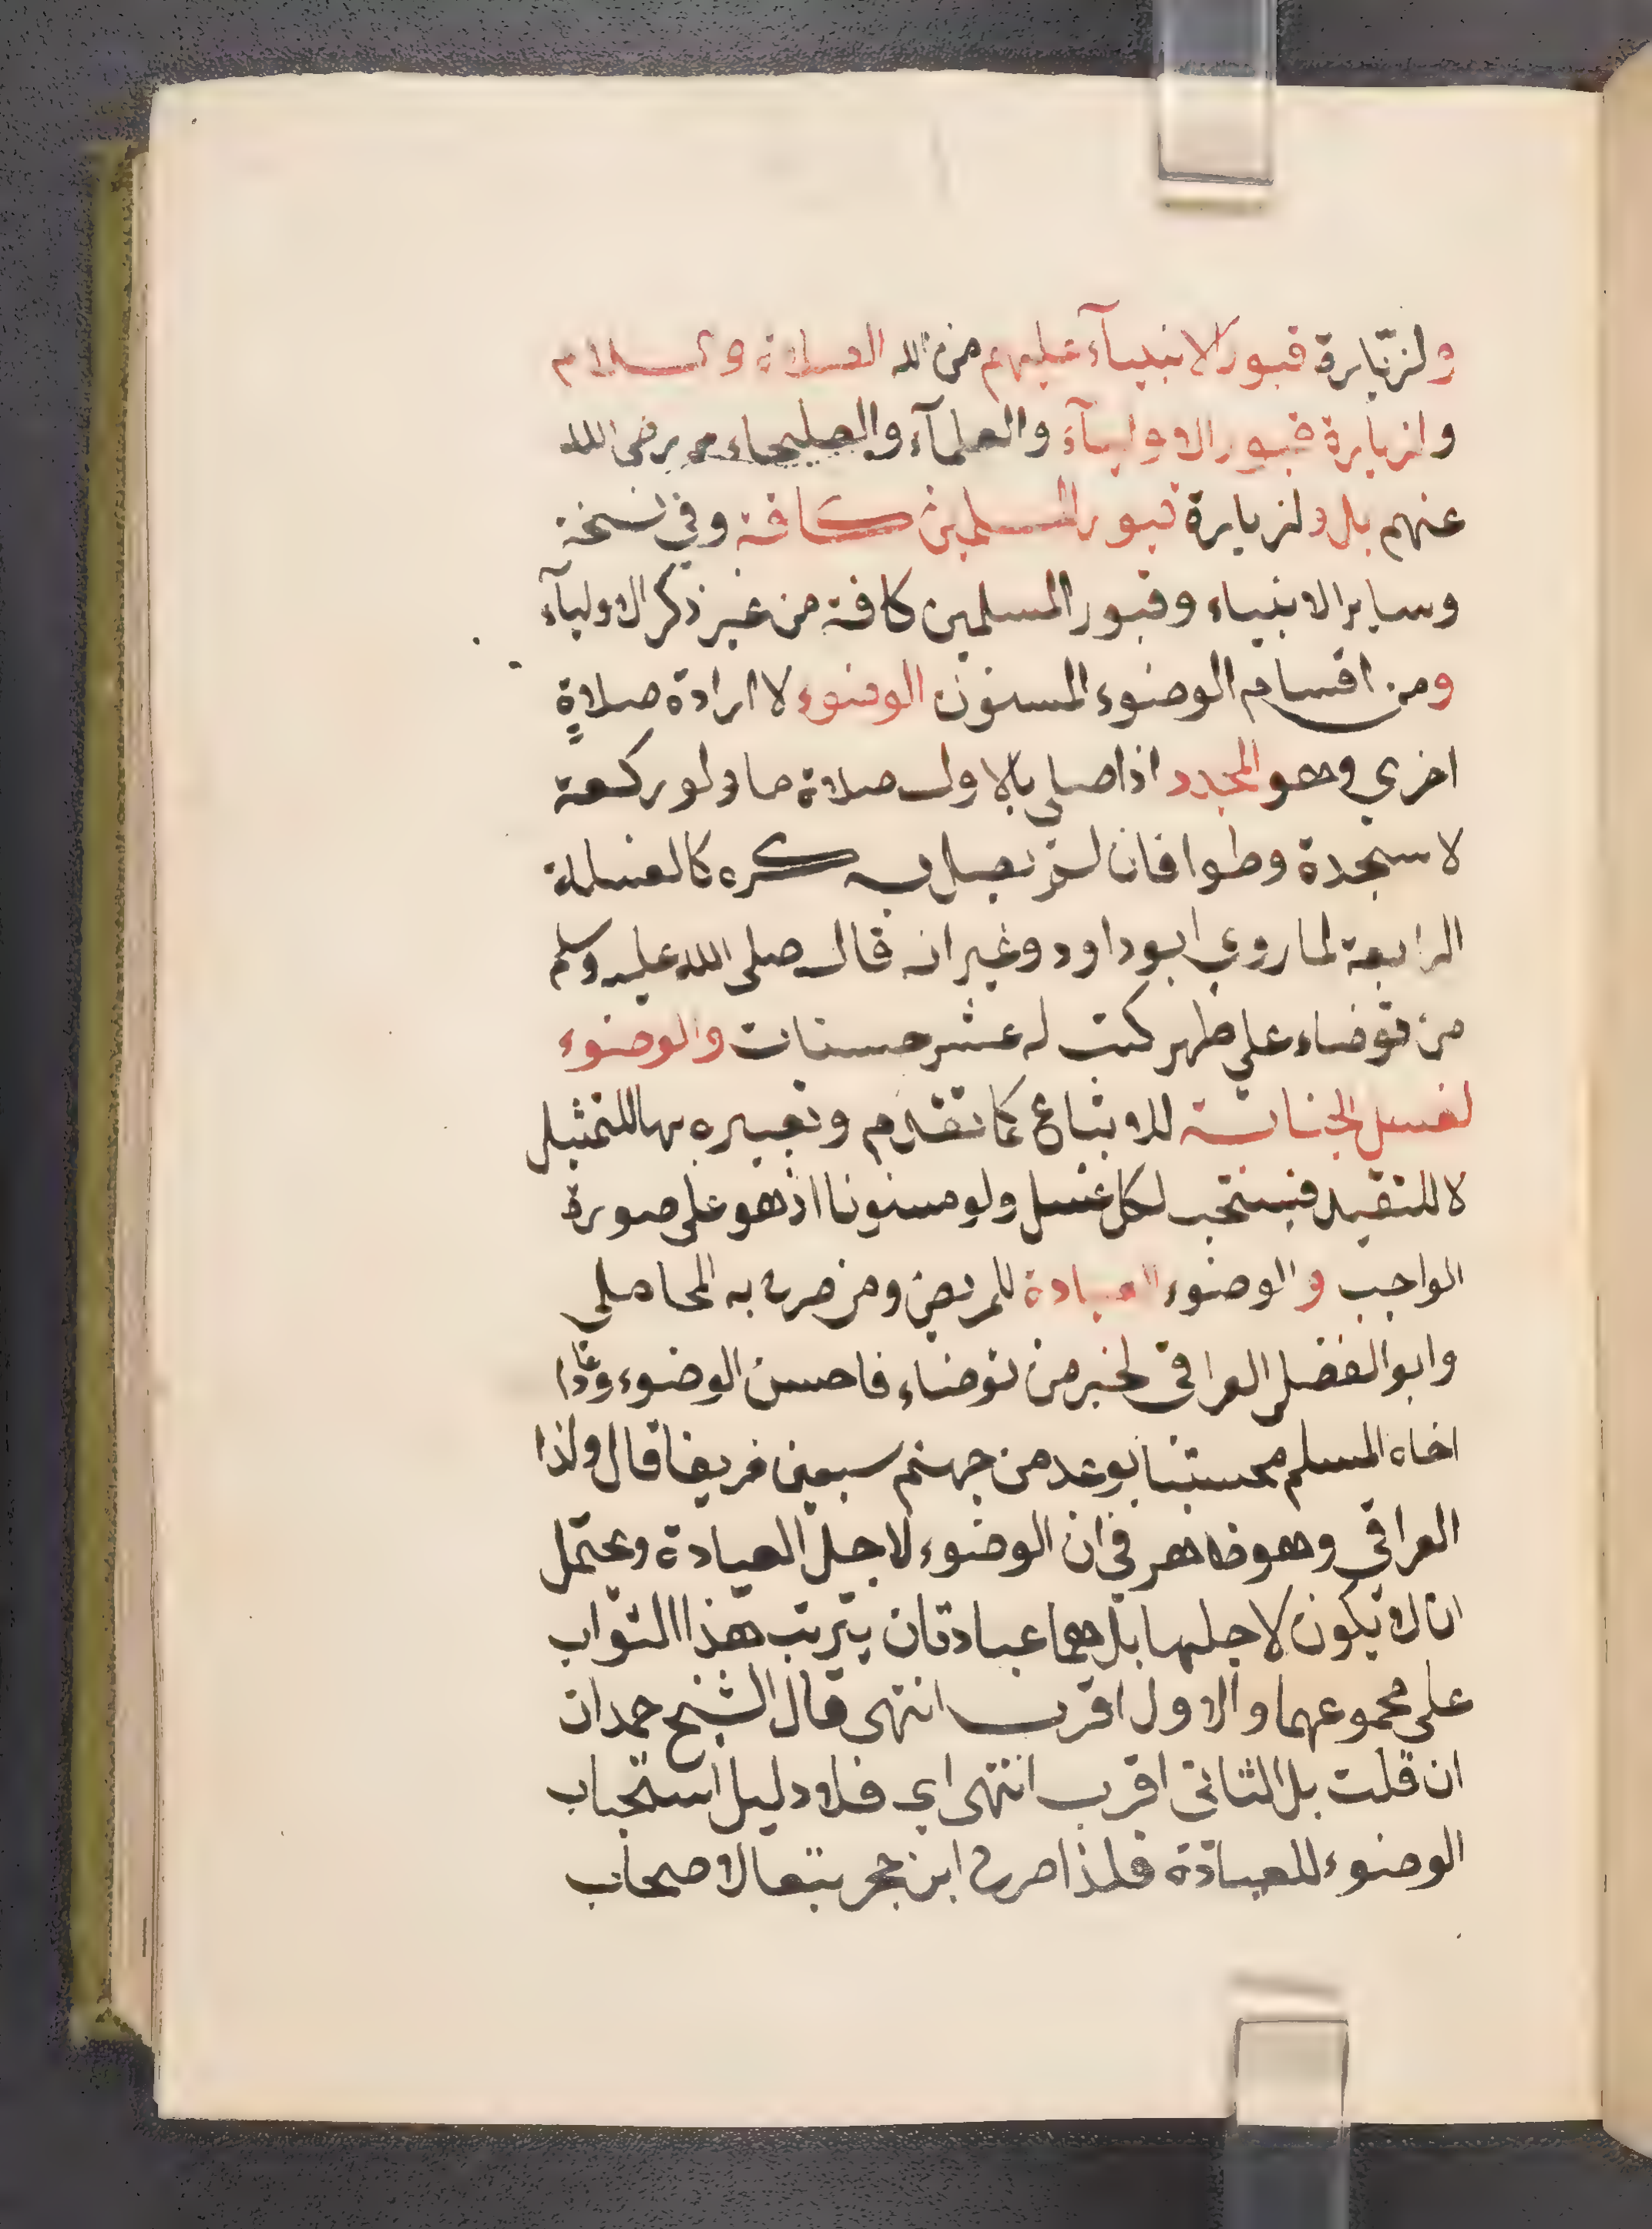 ولزيارة قبور الانبيآء عليهم من الله الصلاة والسلام
ولزيارة قبور الاوليآء والعلمآء والصلحاء رضي الله
عنهم بل ولزيارة قبور المسلمين كافة وفي نسخة
وساير الانبياء وقبور المسلمين كافة من غير ذكر الاوليآء
ومن اقسام الوضوء المسنون الوضوء لا ارادة صلاةٍ
اخري وهو المجدد اذا صلي بالاول صلاة ما ولو ركعة
لا سجدة وطوافا فان لم يصل به كره كالغسلة
الرابعة لما روي ابو داود وغيره انه قال صلى الله عليه وسلم
من توضاء علي طهر كتب له عشر حسنات والوضوء
لغسل الجنابة للاتباع كما تقدم وتعبيره بها للتمثيل
لا للتقييد فيستحب لكل غسل ولو مسنونا اذ هو على صورة
الواجب والوضوء العيادة للمريض وممن صرح به المحاملي
وابو الفضل العراقي لخبر من توضاء فاحسن الوضوء وعاد
اخاه المسلم محستبا بوعد من جهنم سبعين خريفا قال ولذا
العراقي وهو ظاهر في ان الوضوء لاجل العيادة ويحتمل
ان لا تكون لاجلها بل هما عبادتان يترتب هذا الثواب
على مجموعهما والاول اقرب انتهى قال الشيخ حمدان
ان قلت بل الثاني اقرب انتهى اي فلا دليل استحباب
الوضوء للعيادة فلذا صرح ابن حجر تبعا لاصحاب